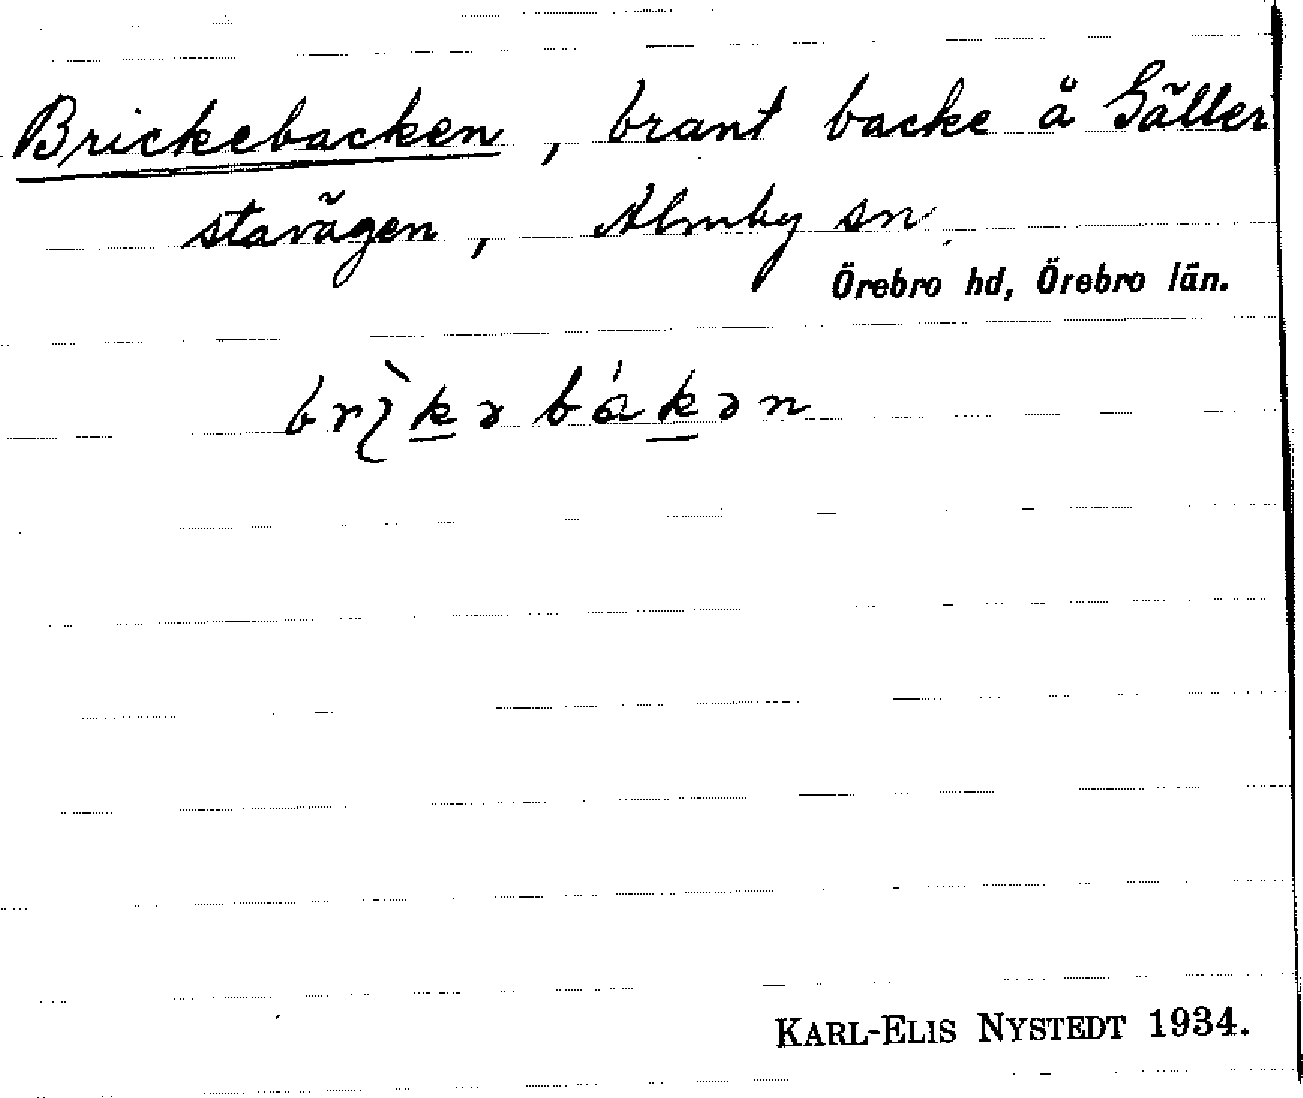 Brickebacken, brant backe å Gäller
stavägen, Almby sn
Örebro hd, Örebro län.
brı̀kəbákən
KARL-ELIS NYSTEDT 1934.